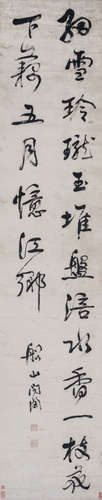 細雪玲瓏玉堆盤涪水香一枝花
下藕五月憶江鄉
船山問陶